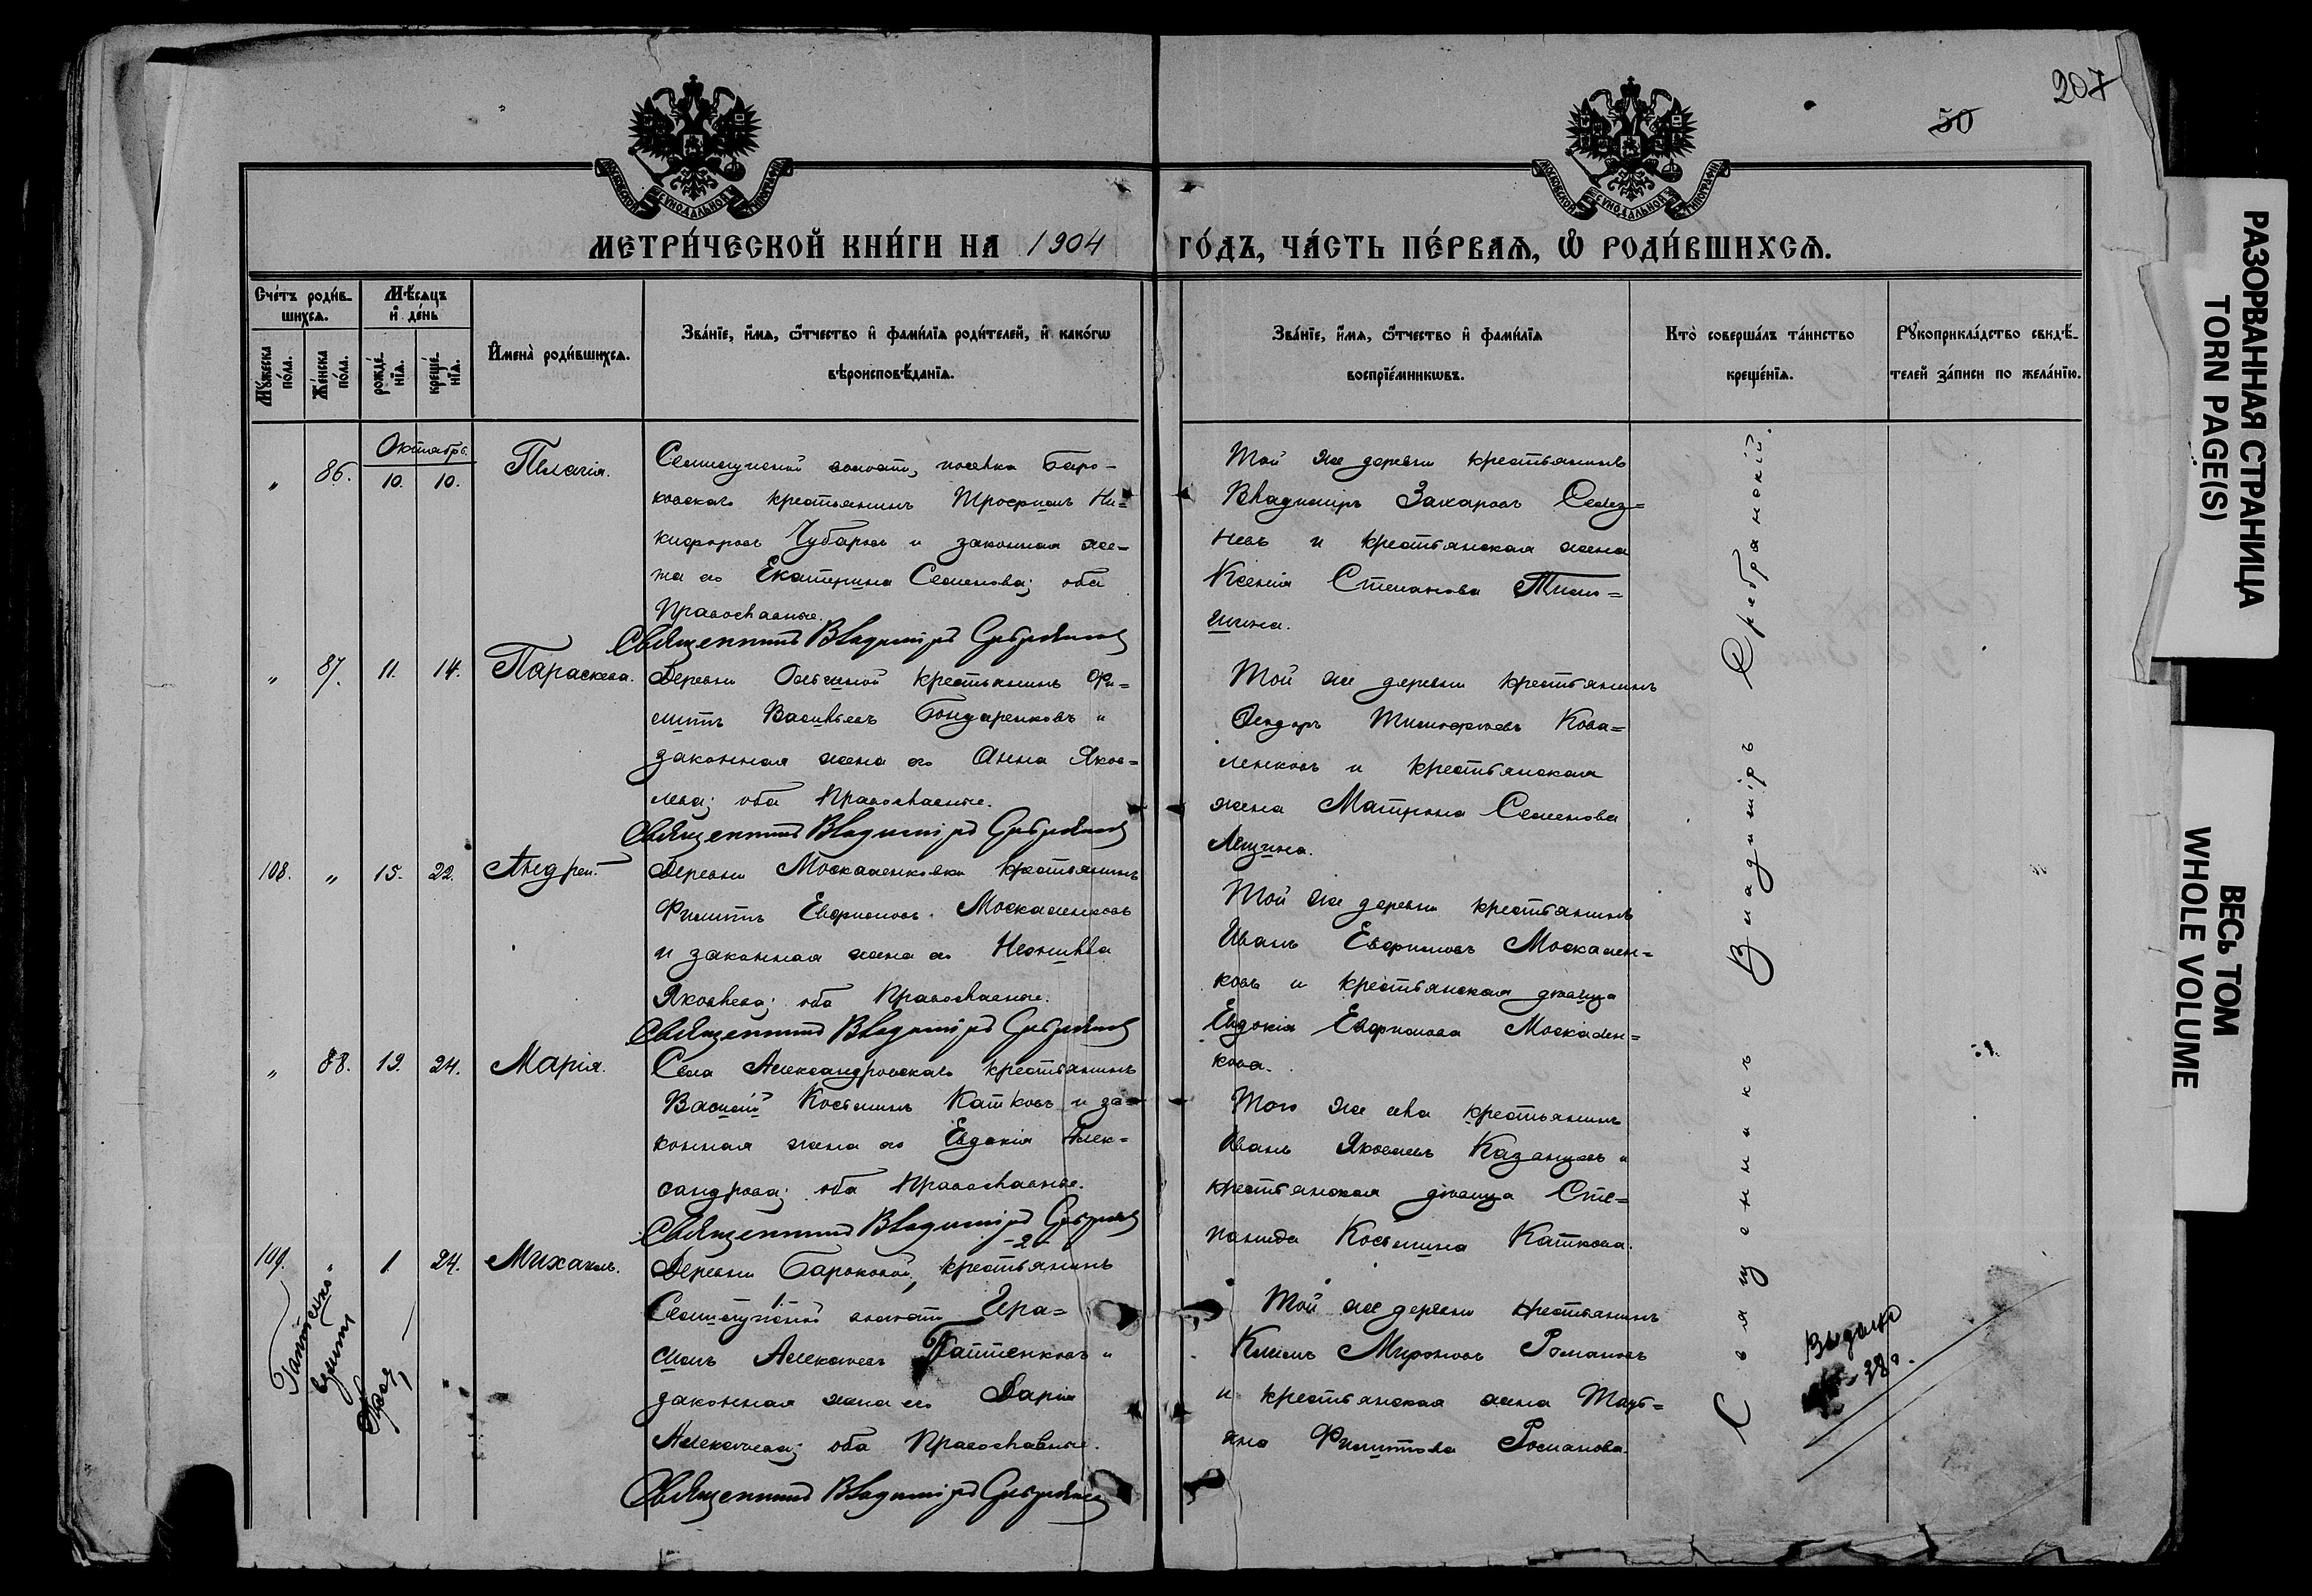 207
50
МОСКОВСКОЙ СѴНОДАЛЬНОЙ ТИПОГРАФІИ
МОСКОВСКОЙ СѴНОДАЛЬНОЙ ТИПОГРАФІИ
МЕТРИ́ЧЕСКОЙ КНИ́ГИ НА 1904 ГО́ДЪ, ЧА́СТЬ ПЕ́РВАѦ, Ѽ РОДИ́ВШИХСѦ.
Сче́тъ роди́в-
шихсѧ.
Мѣ́сѧцъ
и҆ де́нь
Мꙋ́жеска
по́ла.
Же́нска
по́ла.
рожде́-
нїѧ.
креще́-
нїѧ.
И҆мена̀ роди́вшихсѧ.
Зва́нїе, и҆́мѧ, ѻ҆́тчество и҆ фами́лїѧ роди́телей, и҆ како́гѡ
вѣроисповѣ́данїѧ.
Зва́нїе, и҆́мѧ, ѻ҆́тчество и҆ фами́лїѧ
воспрїе́мникѡвъ.
Кто̀ соверша́лъ та́инство
креще́нїѧ.
Рꙋкоприкла́дство свидѣ́-
телей за́писи по жела́нїю.
Октябрь.
„ 86. 10. 10. Пелагія.
волости, поселка Баро-
ковскаго крестьянинъ Трофимъ Ни=
кифоровъ Чубаровъ и законная же-
на его Екатерина Семенова; оба
Православные.
Священникъ Владиміръ Сребрянскій
Той же деревни крестьянинъ
Владимиръ Захаровъ Селез=
невъ и крестьянская жена
Ксенія Степанова Тимо=
шина.
„ 87. 11. 14. Параскева.
Деревни крестьянинъ Фи=
липпъ Васильевъ Бондаренковъ и
законная жена его Анна Яков=
лева; оба Православные.
Священникъ Владиміръ Сребрянскій
Той же деревни крестьянинъ
Ѳеодоръ Тимофеевъ Кова=
ленковъ и крестьянская
жена Матрона Семенова
Лещина.
108. „ 15. 22. Андрей.
Деревни Москаленковки крестьянинъ
Филиппъ Евфимовъ Москаленковъ
и законная жена его Неонилла
Яковлева; оба Православные.
Священникъ Владиміръ Сребрянскій
Той же деревни крестьянинъ
Иванъ Евфимовъ Москален=
ковъ и крестьянская дѣвица
Евдокія Евфимова Москален=
кова.
„ 88. 19. 24. Марія.
Села Александровскаго крестьянинъ
Василій Костинъ Катковъ и за=
конная жена его Евдокія Алек=
сандрова; оба Православные.
Священникъ Владиміръ Сребрянскій
Того же села крестьянинъ
Иванъ Яковлевъ Казанцевъ и
крестьянская дѣвица Сте=
панида Костина Каткова.
109. „ 1. 24. Михаилъ.
-2-
Деревни Бароковой, крестьянинъ
волости Гера=
симъ Алексѣевъ Гаттенковъ и
законная жена его Дарія
Алексѣева; оба Православные.
Священникъ Владиміръ Сребрянскій
Той же деревни крестьянинъ
Климъ Мироновъ Романовъ
и крестьянская жена Тать=
яна Филиппова Романова.
Священникъ Владиміръ Сребрянскій.
Выдано
РАЗОРВАННАЯ СТРАНИЦА
TORN PAGE(S)
ВЕСЬ ТОМ
WHOLE VOLUME